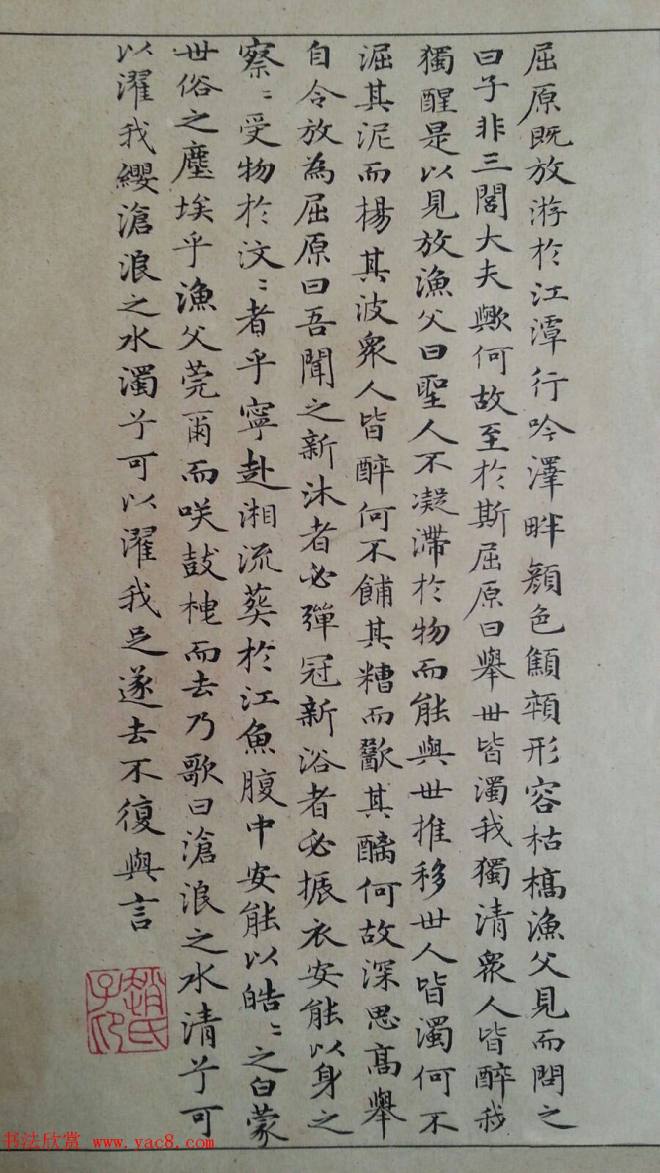 屈原既放游於江潭行吟澤畔顏色顦顇形容枯槁漁父見而問之
曰子非三閭大夫歟何故至於斯屈原曰舉世皆濁我獨清眾人皆醉我
獨醒是以見放漁父曰聖人不凝滯於物而能與世推移世人皆濁何不
淈其泥而楊其波眾人皆醉何不餔其糟而歠其醨何故深思高舉
自令放為屈原曰吾聞之新沐者必彈冠新浴者必振衣安能以身之
察〻受物於汶〻者乎寧赴湘流葬於江魚腹中安能以皓〻之白蒙
世俗之塵埃乎漁父莞爾而咲鼓枻而去乃歌曰滄浪之水清兮可
以濯我纓滄浪之水濁兮可以濯我足遂去不復與言
趙氏子印
书法欣赏 www.yac8.com